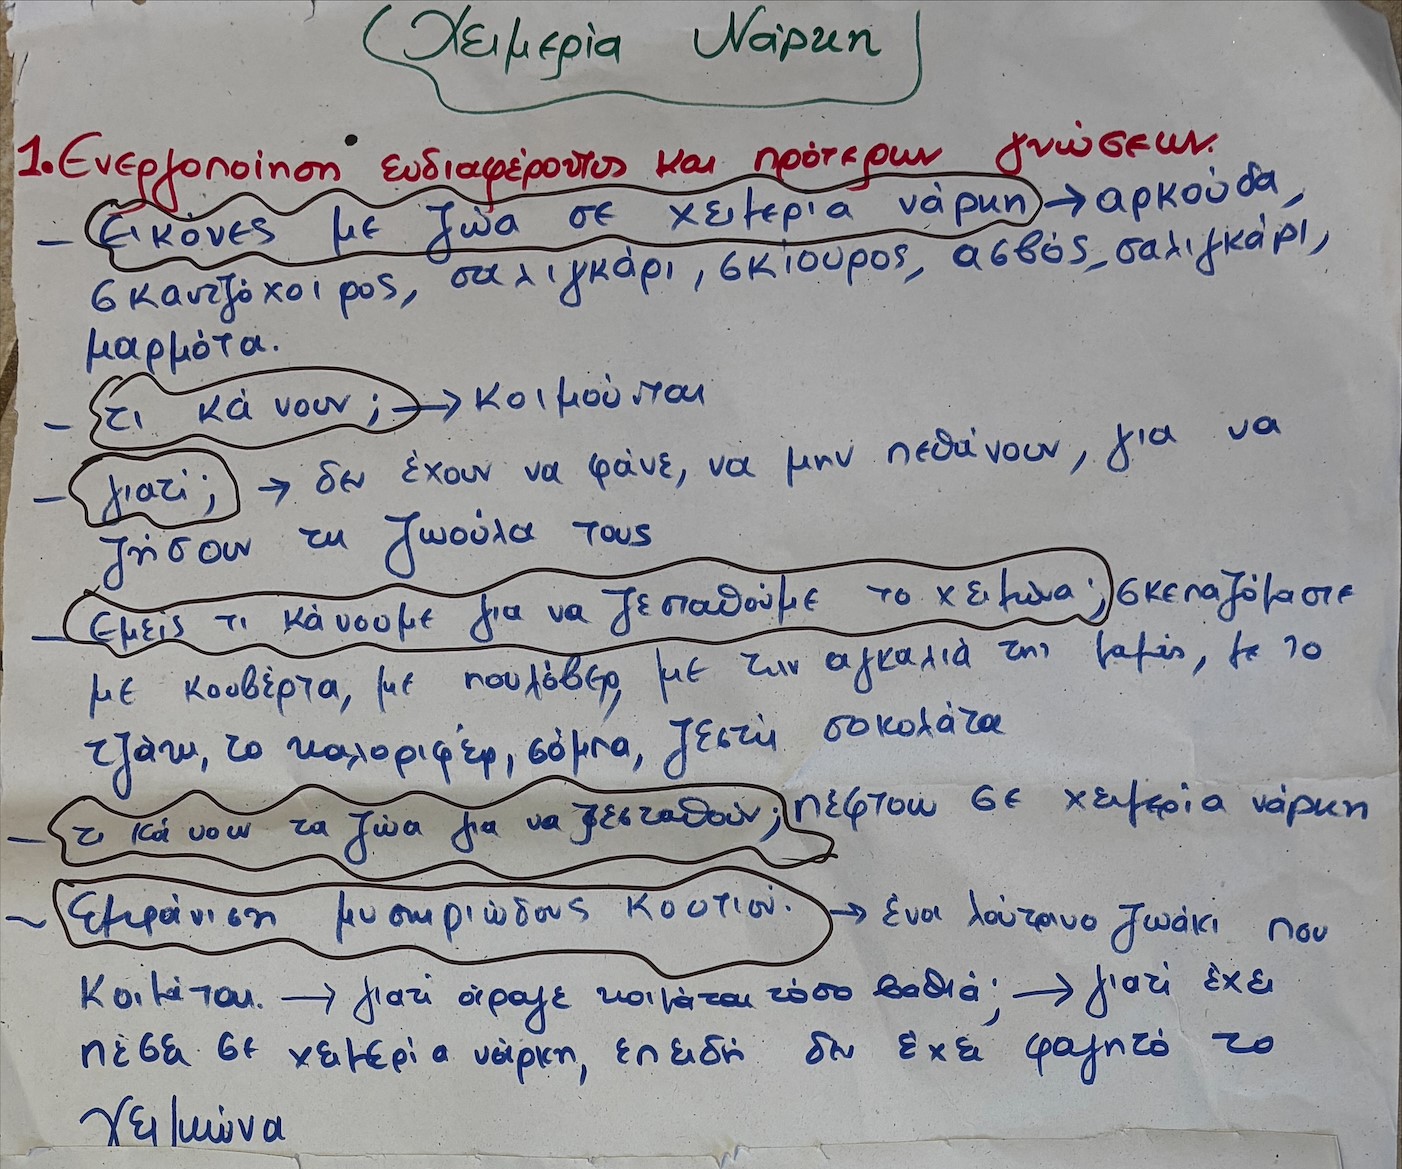 Χειμερία Νάρκη
1. Ενεργοποίηση ενδιαφέροντος και πρότερων γνώσεων.
- Εικόνες με ζώα σε χειμερία νάρκη → αρκούδα,
σκαντζόχοιρος, σαλιγκάρι, σκίουρος, ασβός, σαλιγκάρι,
μαρμότα.
- τι κάνουν; → κοιμούνται
- γιατί; → δεν έχουν να φάνε, να μην πεθάνουν, για να
ζήσουν τη ζωούλα τους
- Εμείς τι κάνουμε για να ζεσταθούμε το χειμώνα; σκεπαζόμαστε
με κουβέρτα, με πουλόβερ, με την αγκαλιά της μαμάς, με το
τζάκι, το καλοριφέρ, σόμπα, ζεστή σοκολάτα
- τι κάνουν τα ζώα για να ζεσταθούν; πέφτουν σε χειμερία νάρκη
- Εμφάνιση μυστηριώδους κουτιού. → ένα λούτρινο ζωάκι που
κοιμάται. → γιατί άραγε κοιμάται τόσο βαθιά; → γιατί έχει
πέσει σε χειμερία νάρκη, επειδή δεν έχει φαγητό το
χειμώνα